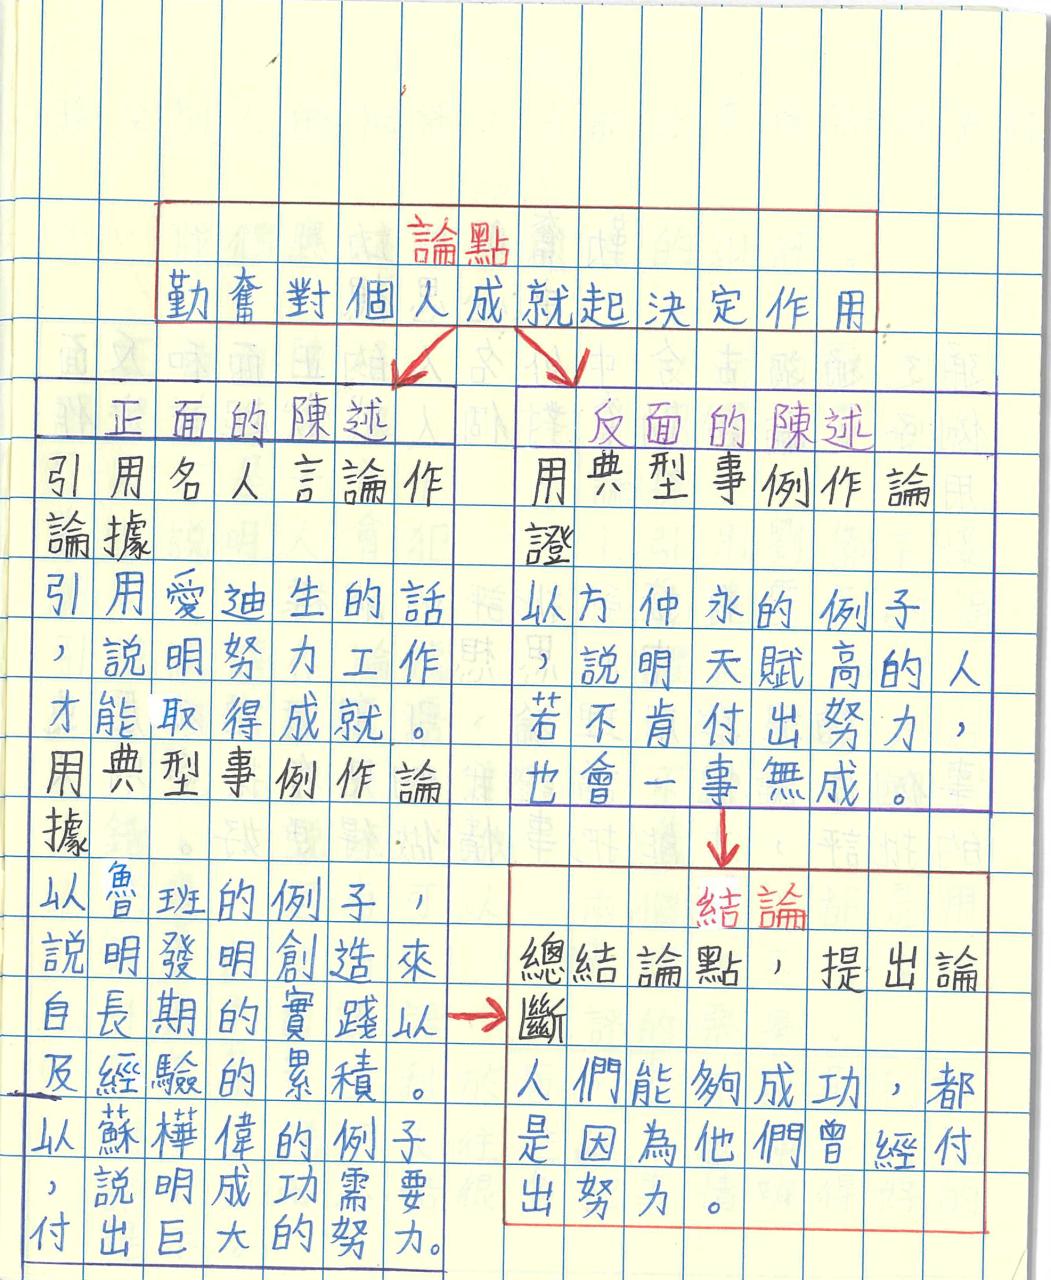 論點
勤奮對個人成就起決定作用
正面的陳述
引用名人言論作
論據
引用愛迪生的話
，說明努力工作
才能取得成就。
用典型事例作論
據
以魯班的例子，
說明發明創造來
自長期的實踐以
及經驗的累積。
以蘇樺偉的例子
，說明成功需要
付出巨大的努力。
反面的陳述
用典型事例作論
證
以方仲永的例子
，說明天賦高的人
若不肯付出努力，
也會一事無成。
結論
總結論點，提出論
斷
人們能夠成功，都
是因為他們曾經付
出努力。